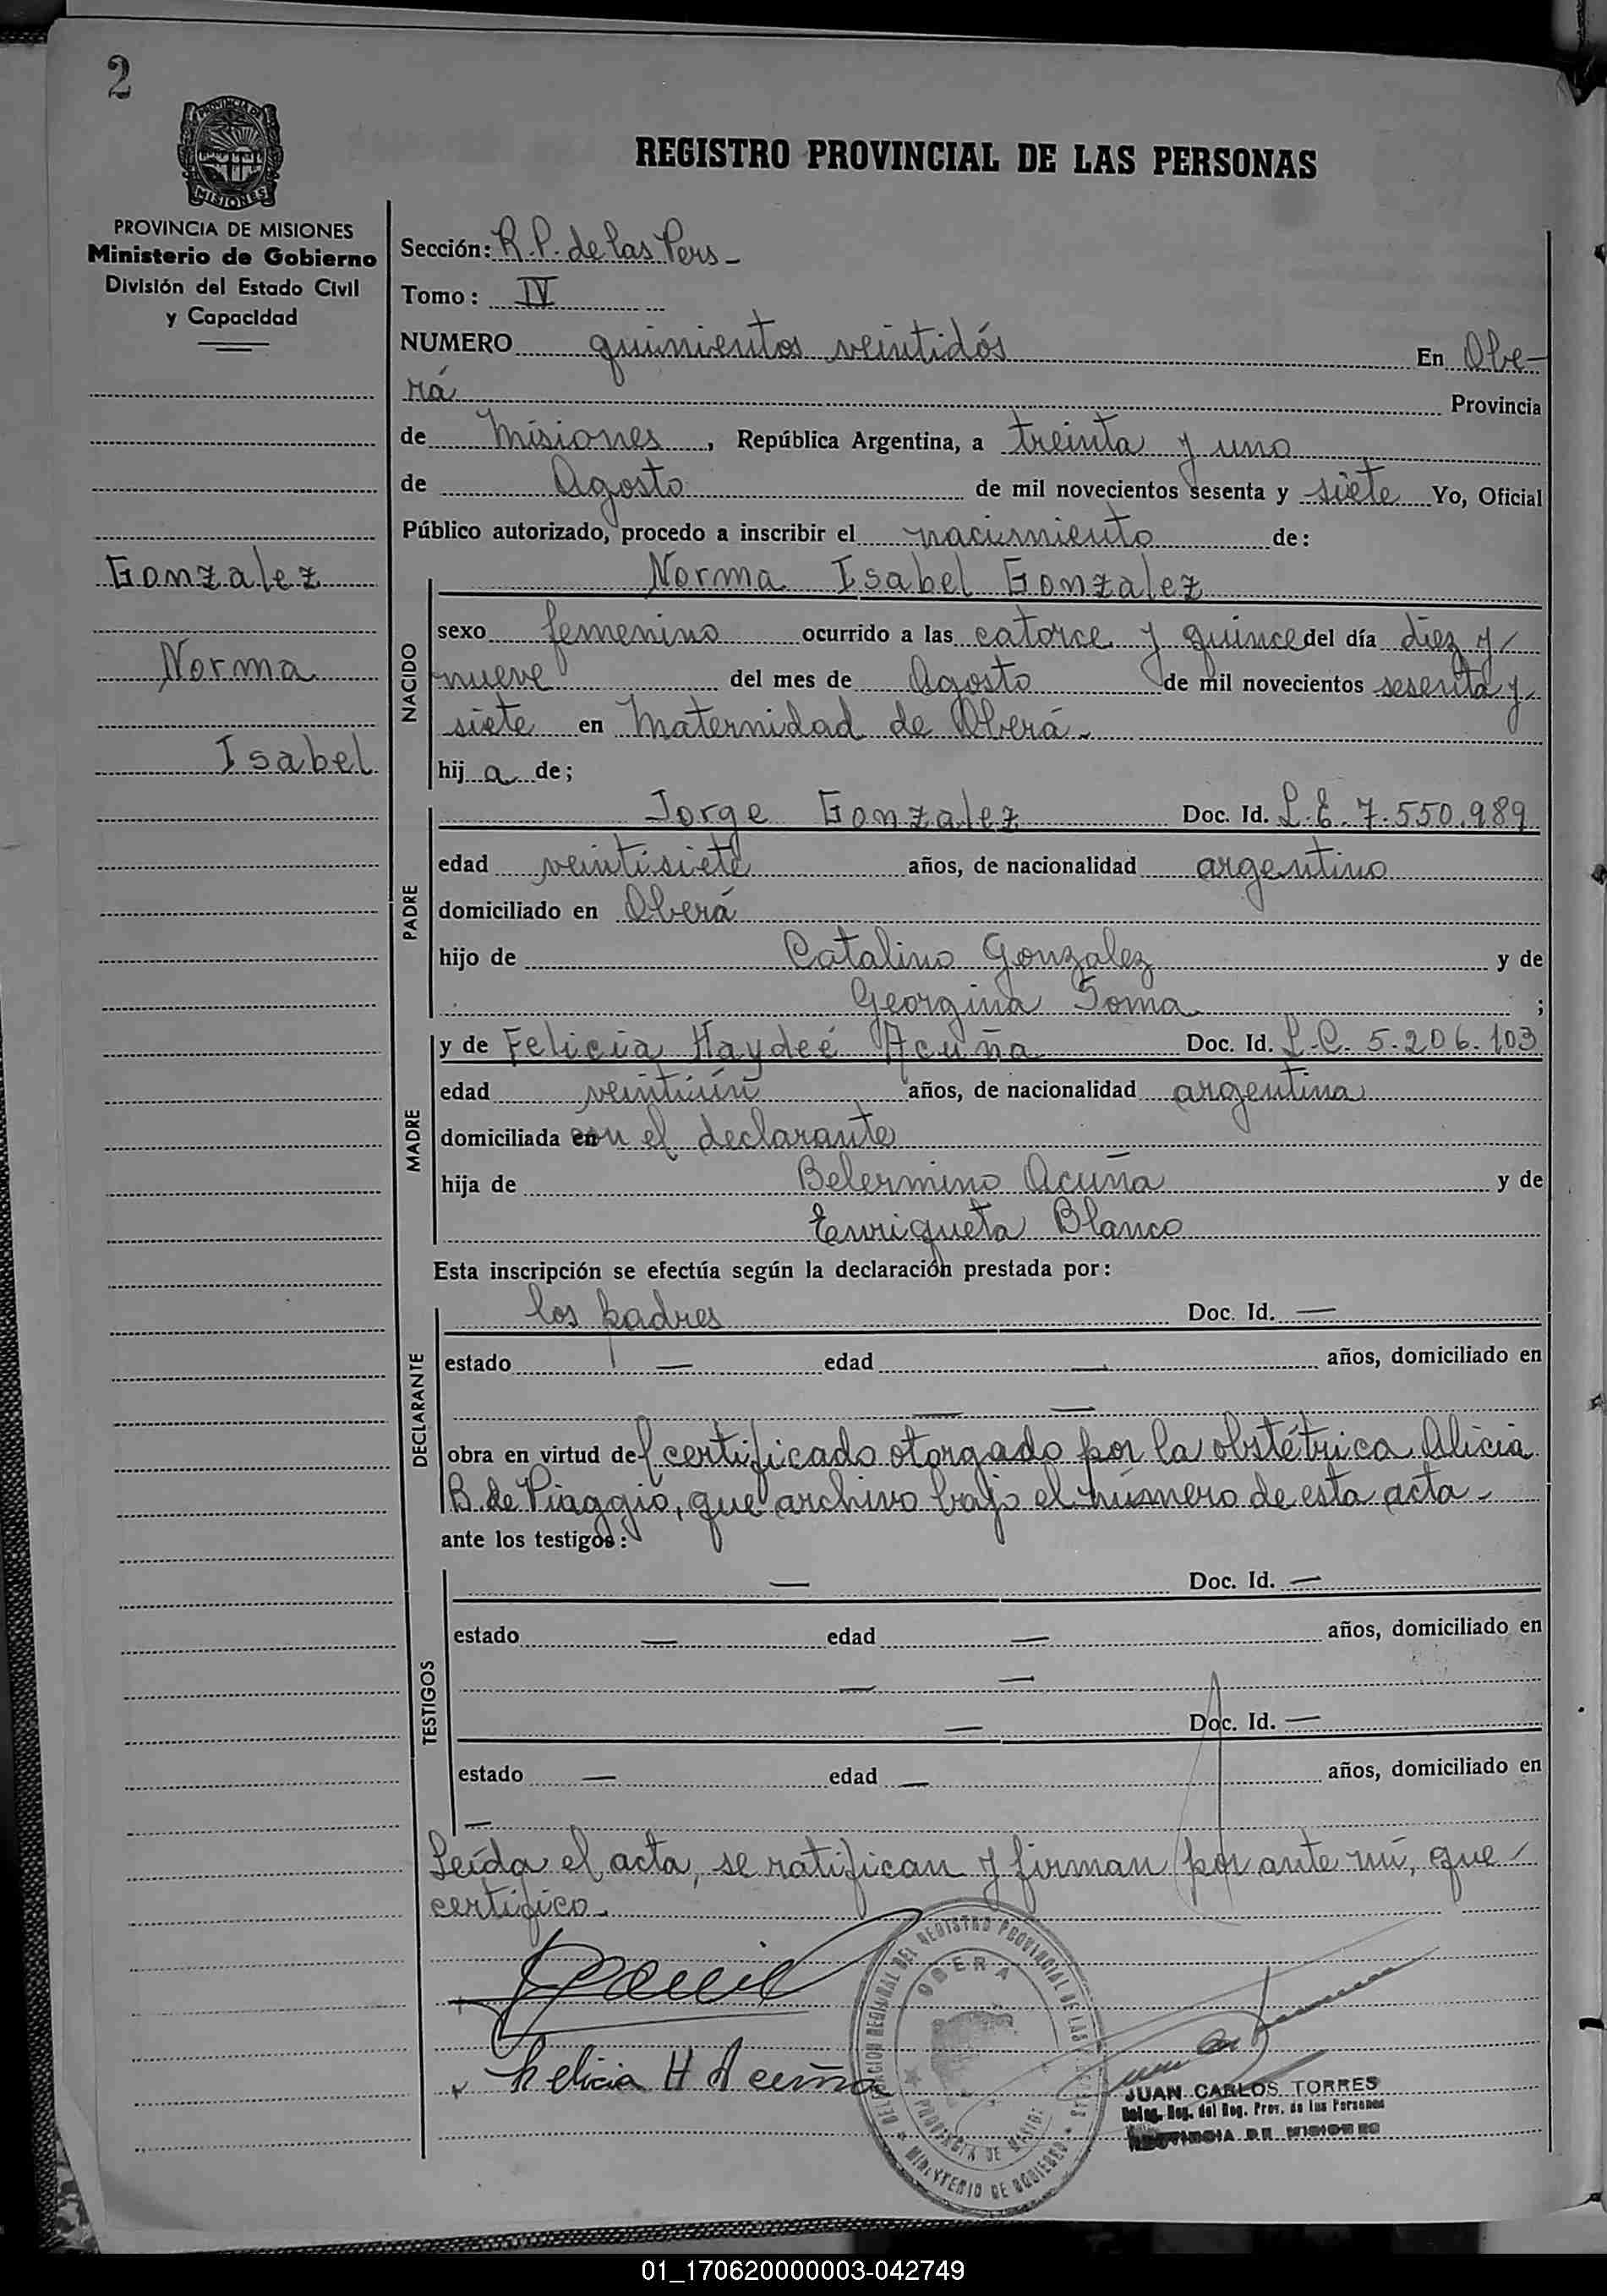 2
PROVINCIA DE
MISIONES
REGISTRO PROVINCIAL DE LAS PERSONAS
PROVINCIA DE MISIONES
Ministerio de Gobierno
División del Estado Civil
y Capacidad
Gonzalez
Norma
Isabel
Sección: R.P. de las Pers -
Tomo: IV
NUMERO quinientos veintidós En Obe-
rá Provincia
de Misiones, República Argentina, a treinta y uno
de Agosto de mil novecientos sesenta y siete Yo, Oficial
Público autorizado, procedo a inscribir el nacimiento de:
NACIDO
Norma Isabel Gonzalez
sexo femenino ocurrido a las catorce y quince del día diez y
nueve del mes de Agosto de mil novecientos sesenta y
siete en Maternidad de Oberá-
hij a de;
PADRE
Jorge Gonzalez Doc. Id. L.E. 7.550.989
edad veintisiete años, de nacionalidad argentino
domiciliado en Oberá
hijo de Catalino Gonzalez y de
Georgina Toma ;
MADRE
y de Felicia Haydeé Acuña Doc. Id. L.C. 5.206.103
edad veintiún años, de nacionalidad argentina
domiciliada en con el declarante
hija de Belermino Acuña y de
Enriqueta Blanco
Esta inscripción se efectúa según la declaración prestada por:
DECLARANTE
los padres Doc. Id. —
estado — edad — años, domiciliado en
— —
obra en virtud del certificado otorgado por la obstétrica Alicia
B. de Piaggio, que archivo bajo el número de esta acta -
ante los testigos:
TESTIGOS
— Doc. Id. —
estado — edad — años, domiciliado en
— —
— Doc. Id. —
estado — edad — años, domiciliado en
—
Leída el acta, se ratifican y firman por ante mí, que
certifico.
Felicia H Acuña
DELEGACION REGIONAL DEL REGISTRO PROVINCIAL DE LAS
OBERA
PROVINCIA DE
MINISTERIO DE GOBIERNO
JUAN CARLOS TORRES
Deleg. Reg. del Reg. Prov. de las Personas
PROVINCIA DE MISIONES
01_170620000003-042749